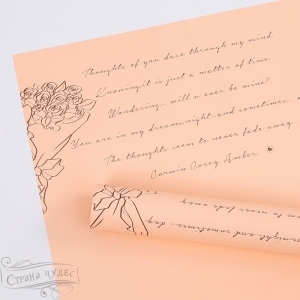 Thoughts of you dace through my mind
Knowing it is just a matter of time
Wondering will u ever be mine?
You are in my dreams, night and sometimes
The thoughts seem to never fade away
Corwin Corey Amber
never fade away
night and sometimes day
Страна чудес